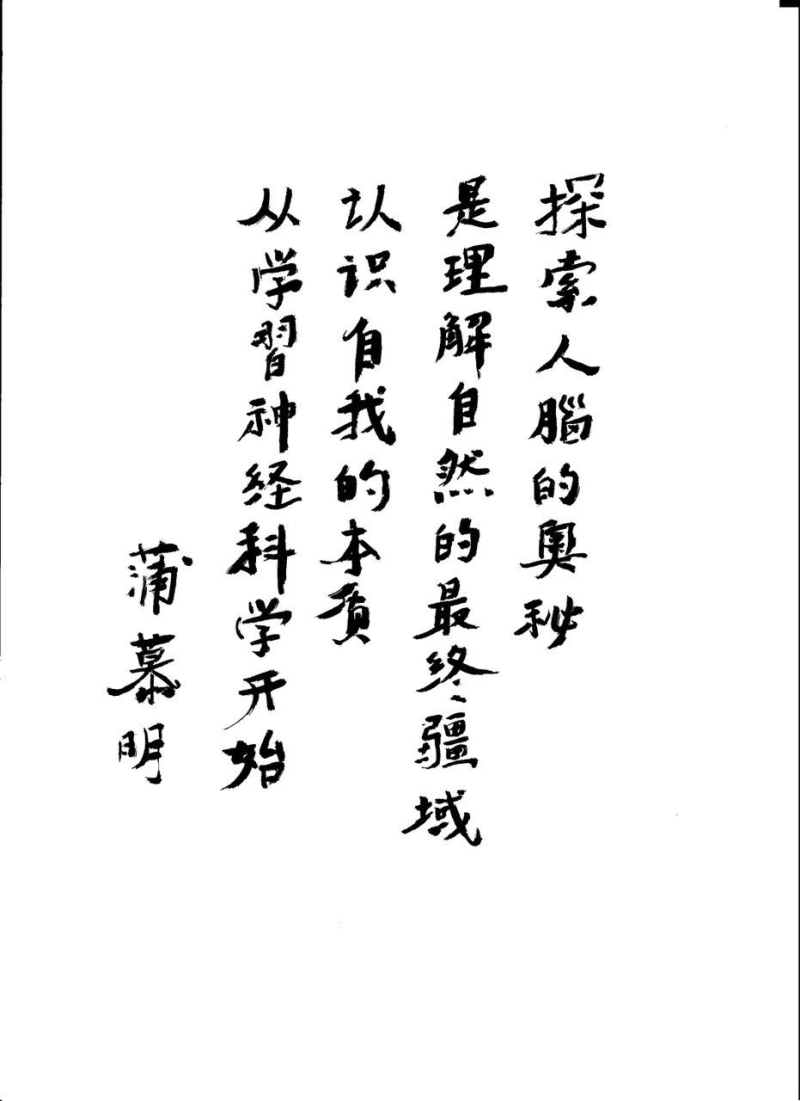 探索人腦的奧秘
是理解自然的最终疆域
认识自我的本质
从学習神经科学开始
蒲慕明